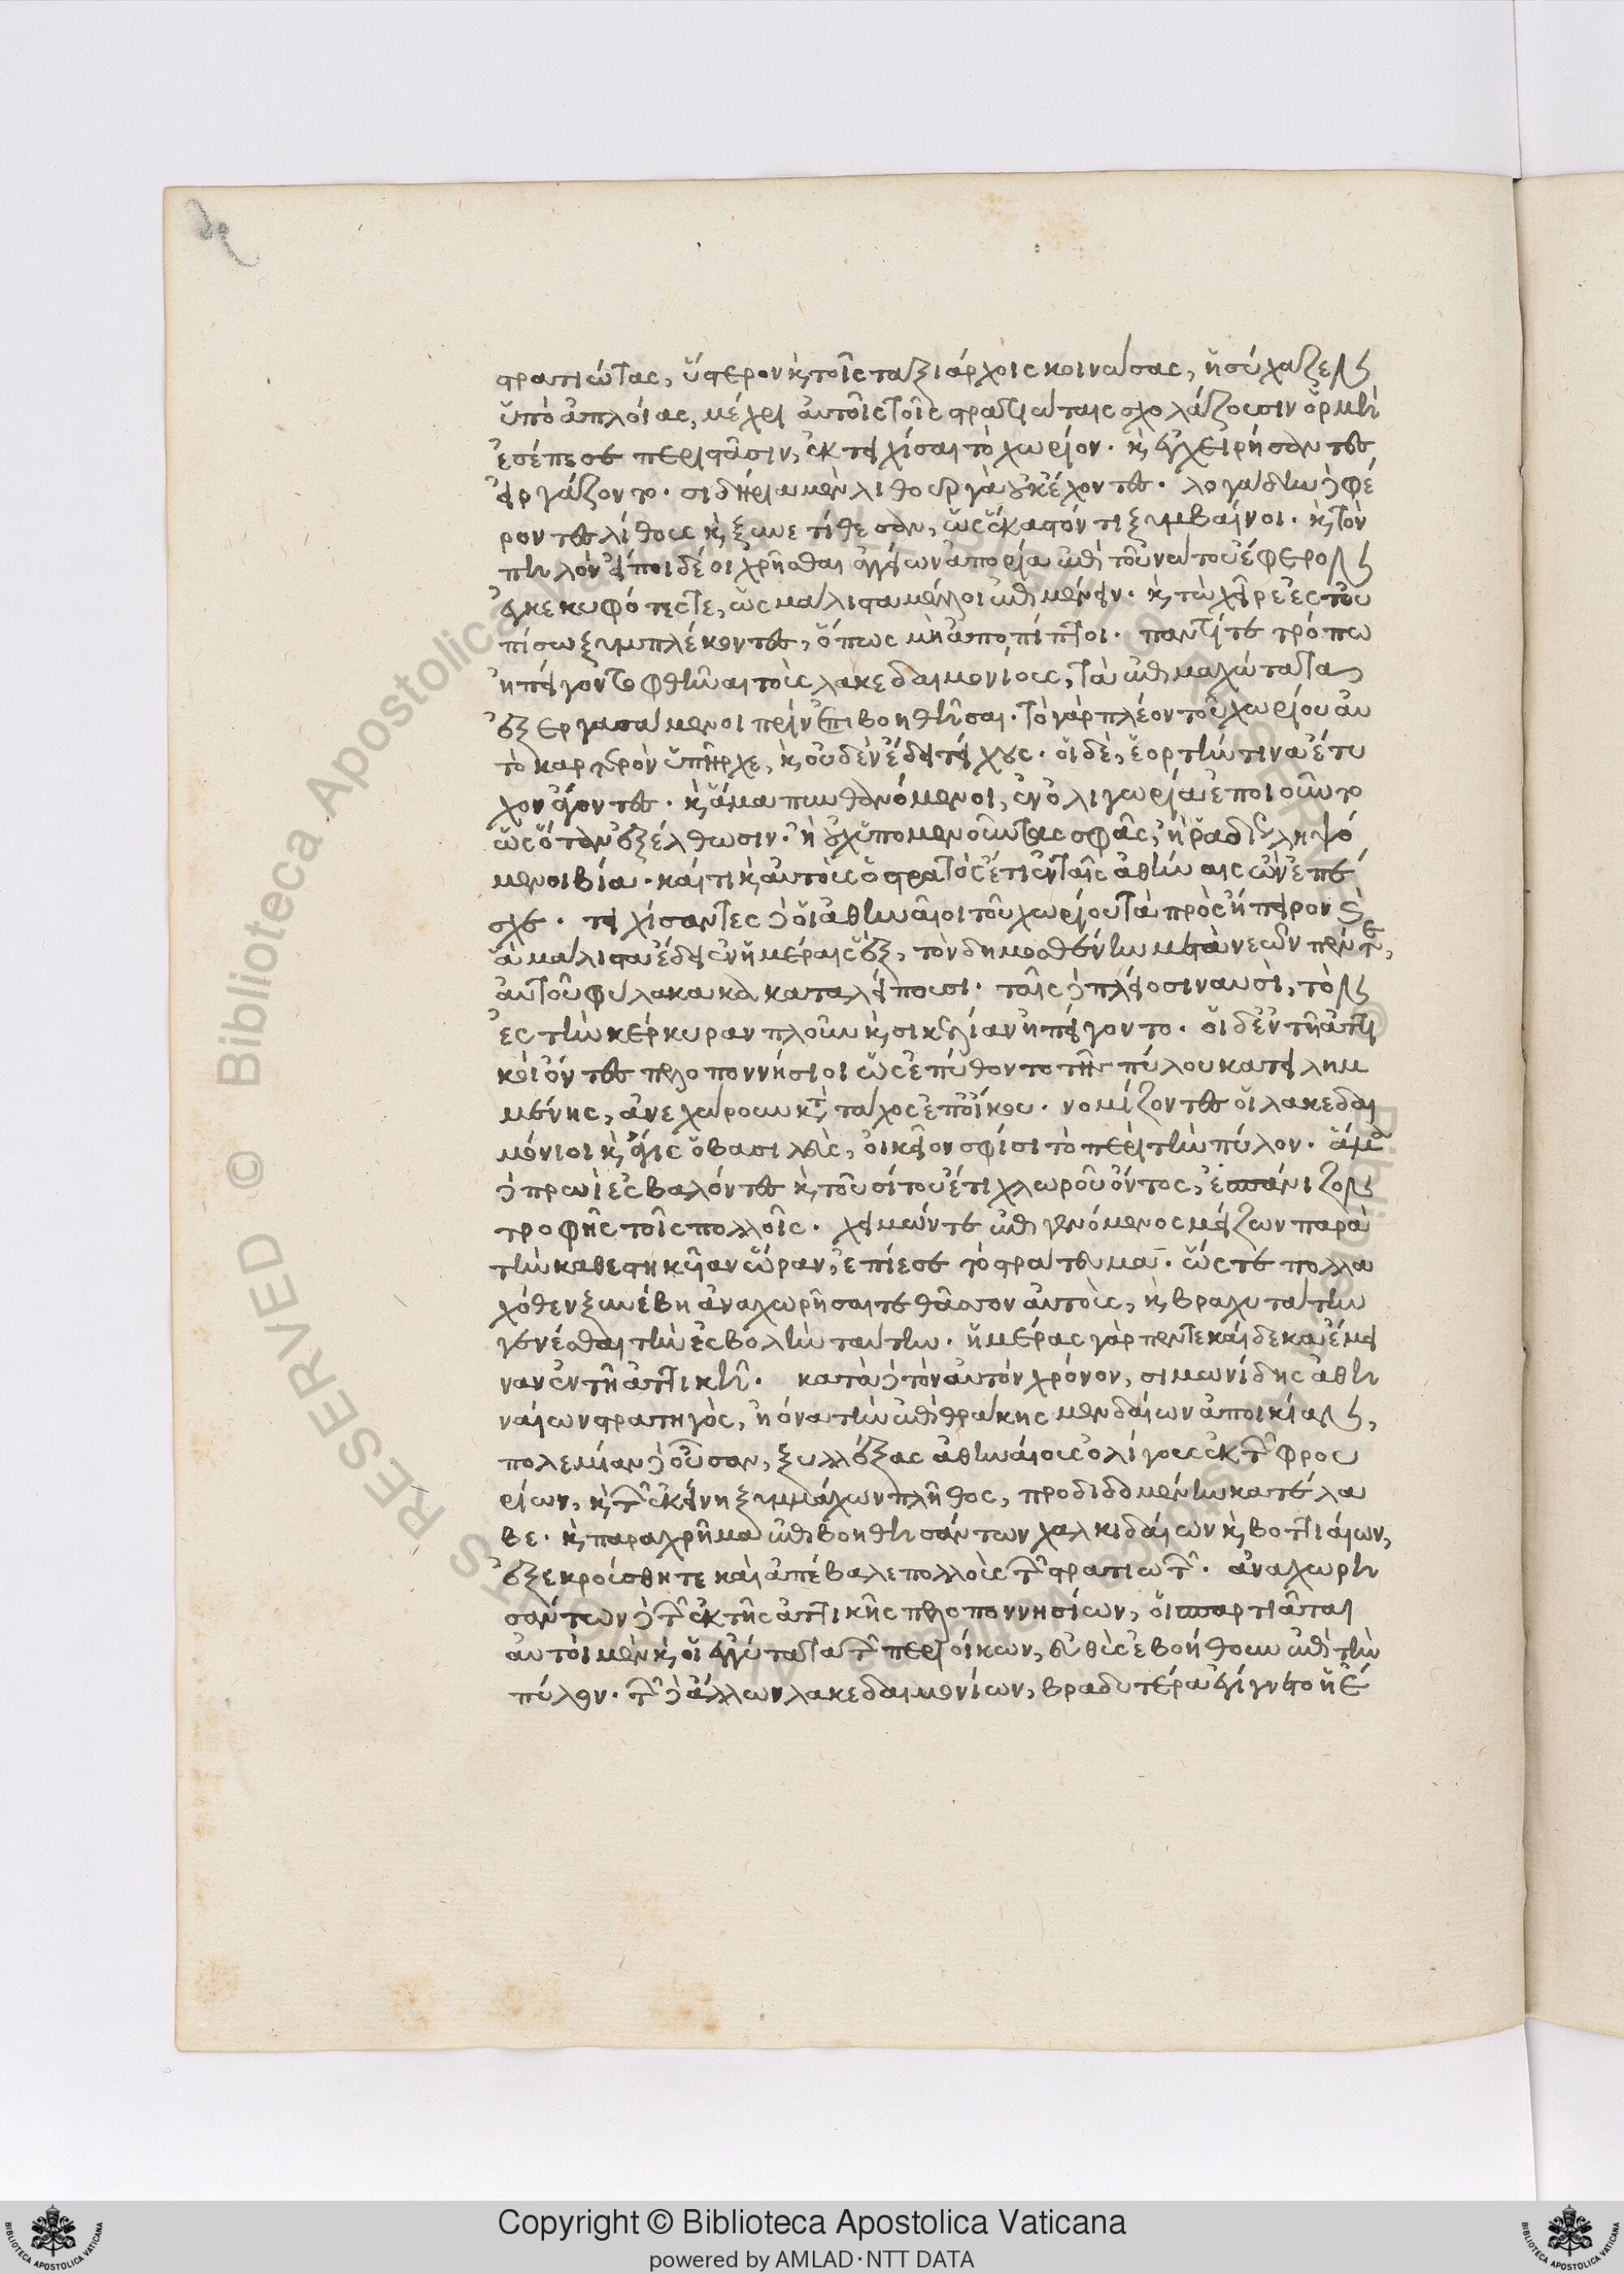 στρατιώτας, ὕστερον καὶ τοῖς ταξιάρχοις κοινώσας, ἡσύχαζεν
ὑπὸ ἀπλοίας, μέχρι αὐτοῖς τοῖς στρατιώταις σχολάζουσιν ὁρμὴ
ἐσέπεσε περιστᾶσιν, ἐκτειχίσαι τὸ χωρίον. καὶ ἐγχειρήσαντες
εἰργάζοντο. σιδήρια μὲν λιθουργὰ οὐκ ἔχοντες. λογάδην δὲ φέ
ροντες λίθους καὶ ξυνετίθεσαν, ὡς ἕκαστόν τι ξυμβαίνοι. καὶ τὸν
πηλὸν εἴ ποι δέοι χρῆσθαι ἀγγείων ἀπορία ἐπὶ τοῦ νώτου ἔφερον
ἐγκεκυφότες τε, ὡς μάλιστα μέλλοι ἐπιμένειν. καὶ τὼ χεῖρε ἐς τοὐ
πίσω ξυμπλέκοντες, ὅπως μὴ ἀποπίπτοι. παντί τε τρόπω
ἠπείγοντο φθῆναι τοὺς λακεδαιμονίους, τὰ ἐπιμαχώτατα
ἐξεργασάμενοι πρὶν ἐπιβοηθῆσαι. τὸ γὰρ πλέον τοῦ χωρίου αὐ
τὸ καρτερὸν ὑπῆρχε, καὶ οὐδὲν ἔδει τείχους. οἱ δὲ, ἑορτήν τινα ἔτυ
χον ἄγοντες. καὶ ἅμα πυνθανόμενοι, ἐν ὀλιγωρία ἐποιοῦντο
ὡς ὅταν ἐξέλθωσιν. ἢ οὐχ ὑπομενοῦντας σφᾶς, ἢ ῥαδίως ληψό
μενοι βία. καί τι καὶ αὐτοὺς ὁ στρατὸς ἔτι ἐν ταῖς ἀθήναις ὢν ἐπέ
σχε. τειχίσαντες δὲ οἱ ἀθηναῖοι τοῦ χωρίου τὰ πρὸς ἤπειρον καὶ
ἃ μάλιστα ἔδει ἐν ἡμέραις ἓξ, τὸν δημοσθένην μετὰ νεῶν πέντε,
αὐτοῦ φύλακα καταλείπουσι. ταῖς δὲ πλείοσι ναυσὶ, τὸν
ἐς τὴν κέρκυραν πλοῦν καὶ σικελίαν ἠπείγοντο. οἱ δ' ἐν τῆ ἀττι
κῆ ὄντες πελοποννήσιοι ὡς ἐπύθοντο τῆς πύλου κατειλημ
μένης, ἀνεχώρουν κατὰ τάχος ἐπ' οἴκου. νομίζοντες οἱ λακεδαι
μόνιοι καὶ ἆγις ὁ βασιλεὺς, οἰκεῖον σφίσι τὸ περὶ τὴν πύλον. ἅμα
δὲ πρωῒ ἐσβαλόντες καὶ τοῦ σίτου ἔτι χλωροῦ ὄντος, ἐσπάνιζον
τροφῆς τοῖς πολλοῖς. χειμών τε ἐπιγενόμενος μείζων παρὰ
τὴν καθεστηκυῖαν ὥραν, ἐπίεσε τὸ στράτευμα. ὥστε πολλα
χόθεν ξυνέβη ἀναχωρῆσαί τε θᾶσσον αὐτοὺς, καὶ βραχυτάτην
γενέσθαι τὴν ἐσβολὴν ταύτην. ἡμέρας γὰρ πεντεκαίδεκα ἔμει
ναν ἐν τῆ ἀττικῆ. κατὰ δὲ τὸν αὐτὸν χρόνον, σιμωνίδης ἀθη
ναίων στρατηγὸς, ἠιόνα τὴν ἐπὶ θράκης μενδαίων ἀποικίαν,
πολεμίαν δὲ οὖσαν, ξυλλέξας ἀθηναίους ὀλίγους ἐκ τῶν φρου
ρίων, καὶ τῶν ἐκείνη ξυμμάχων πλῆθος, προδιδομένην κατέλα
βε. καὶ παραχρῆμα ἐπιβοηθησάντων χαλκιδαίων καὶ βοττιαίων,
ἐξεκρούσθη τε καὶ ἀπέβαλε πολλοὺς τῶν στρατιωτῶν. ἀναχωρη
σάντων δὲ τῶν ἐκ τῆς ἀττικῆς πελοποννησίων, οἱ σπαρτιᾶται
αὐτοὶ μὲν καὶ οἱ ἐγγύτατα τῶν περιοίκων, εὐθὺς ἐβοήθουν ἐπὶ τὴν
πύλον. τῶν δὲ ἄλλων λακεδαιμονίων, βραδυτέρα ἐγίγνετο ἡ ἔ